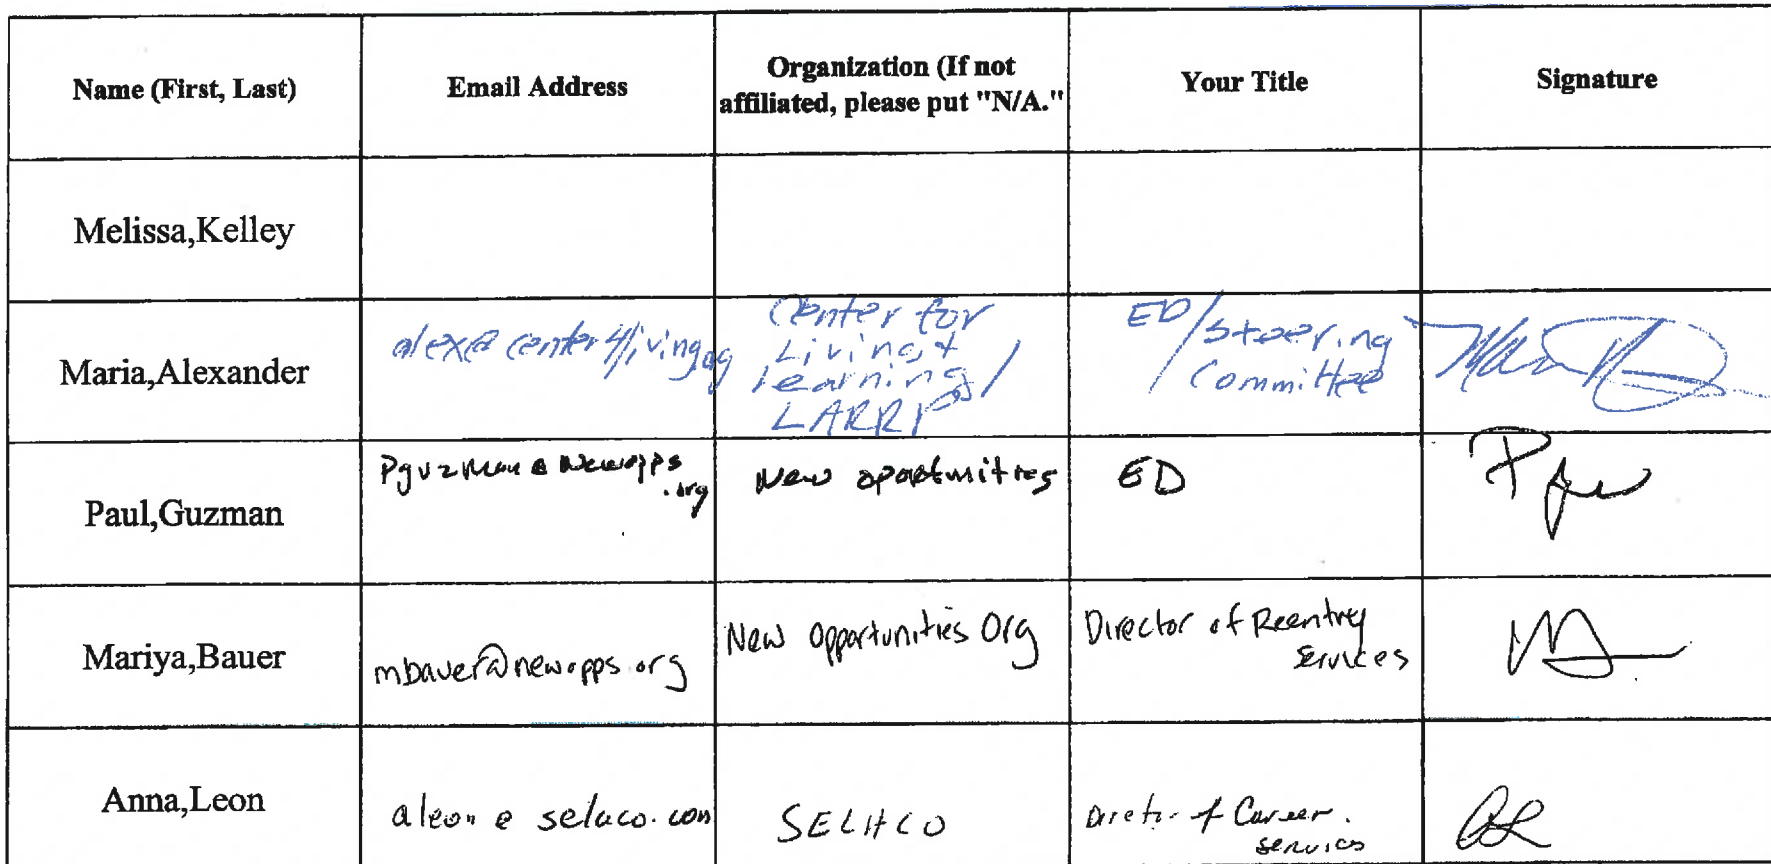 Name (First, Last)
Email Address
Organization (If not
affiliated, please put "N/A."
Your Title
Signature
Melissa,Kelley
Maria,Alexander
alex@center4living.org
Center for
Living &
learning/
LARRP
ED/Steering
Committee
Paul,Guzman
Pguzman@Newopps
.org
New opoortunities
ED
Mariya,Bauer
mbauer@newopps.org
New Opportunities Org
Director of Reentry
Services
Anna,Leon
aleon@selaco.com
SELACO
Director of Career
services